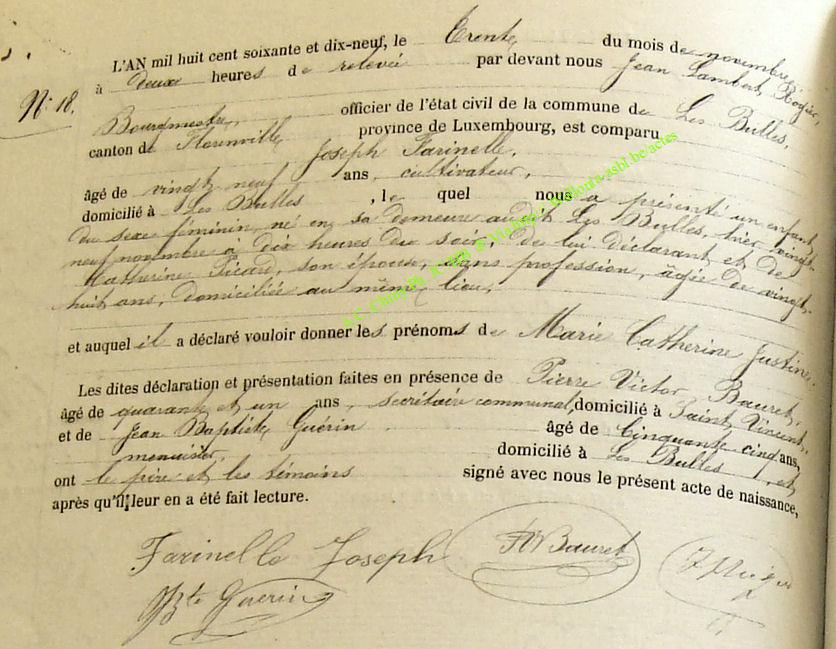 L'AN mil huit cent soixante et dix-neuf, le Trente du mois de novembre,
à deux heures de relevée par devant nous Jean Lambert Rogier,
N° 18.
Bourgmestre, officier de l'état civil de la commune de Les Bulles,
canton de Florenville province de Luxembourg, est comparu
Joseph Farinelle,
âgé de vingt neuf ans, cultivateur,
domicilié à Les Bulles, le quel nous a présenté un enfant
du sexe féminin, né en sa demeure audit Les Bulles, hier vingt-
neuf novembre à dix heures du soir, de lui déclarant et de
Catherine Picard, son épouse, sans profession, agée de vingt-
huit ans, domiciliée au même lieu,
et auquel il a déclaré vouloir donner les prénoms de Marie Catherine Justine.
Les dites déclaration et présentation faites en présence de Pierre Victor Bauret,
âgé de quarante et un ans, secrétaire communal, domicilié à Saint Vincent,
et de Jean Baptiste Guérin âgé de Cinquante cinq ans,
menuisier, domicilié à Les Bulles, et
ont le père et les témoins signé avec nous le présent acte de naissance,
après qu'il leur en a été fait lecture.
Farinelle Joseph
PV Bauret
JBte Guerin